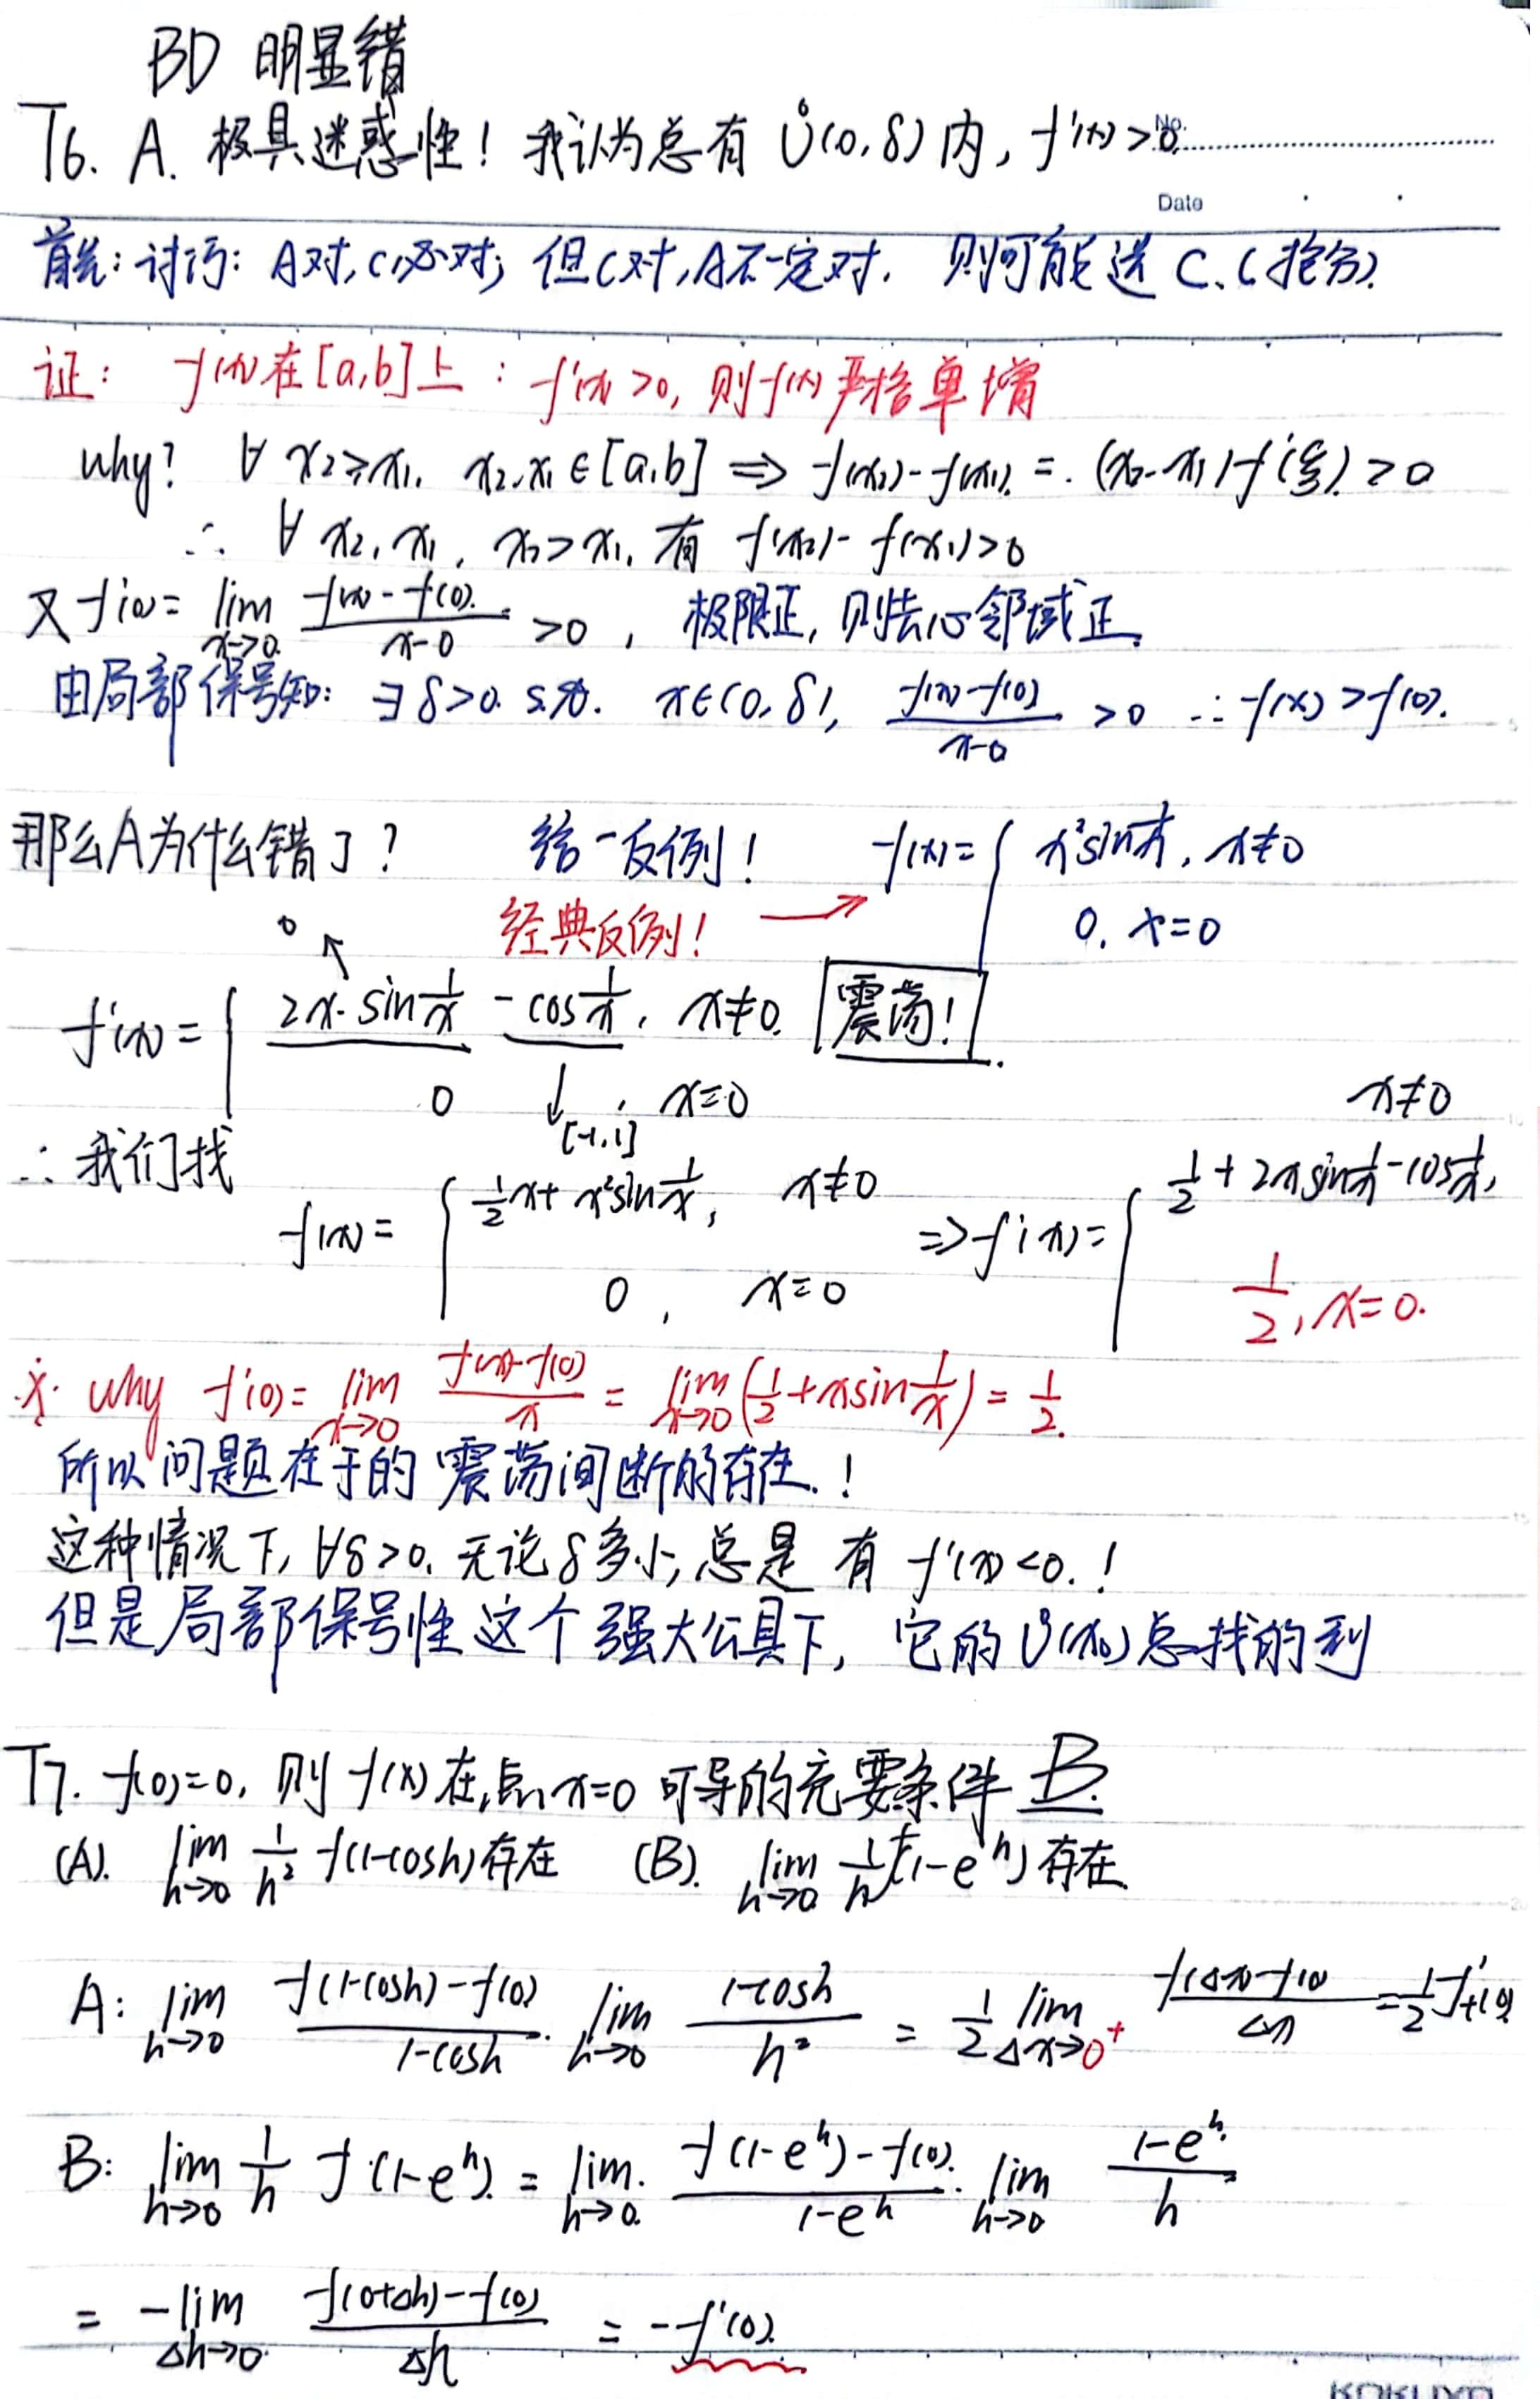 BD 明显错
T6. A. 极具迷惑性! 我认为总有 Ů(0,δ) 内, f'(x) > 0.
No.
Date
首先: 讨巧: A对, C必对; 但C对, A不一定对. 则可能选 C. (抢分).
证: f(x) 在 [a,b] 上 : f'(x) >0, 则 f(x) 严格单增
why? ∀ x₂≥x₁. x₂.x₁ ∈ [a.b] ⇒ f(x₂)-f(x₁). =. (x₂-x₁) f'(ξ). ≥ 0
∴ ∀ x₂, x₁, x₂>x₁, 有 f(x₂)- f(x₁)>0
又 f'(0)= lim_{x→0} (f(x) - f(0))/(x-0) >0 , 极限正, 则去心邻域正.
由局部保号知: ∃ δ>0. s.t. x∈(0, δ), (f(x)-f(0))/(x-0) > 0 ∴ f(x) > f(0).
那么A为什么错了? 给一反例! f(x)= { x²sin1/x, x≠0
经典反例! → 0. x=0
0
f'(x)= { 2x·sin1/x -cos1/x, x≠0. 震荡!
0 , x=0
[-1,1]
∴ 我们找
f(x)= { 1/2x+x²sin1/x, x≠0 ⇒ f'(x)= { 1/2+2xsin1/x-cos1/x, x≠0
0, x=0 1/2, x=0.
※ why f'(0)= lim_{x→0} (f(x)-f(0))/x = lim_{x→0}(1/2+xsin1/x) = 1/2.
所以问题在于的震荡间断的存在.!
这种情况下, ∀δ>0. 无论δ多小, 总是 有 f'(x)<0.!
但是局部保号性这个强大公具下, 它的 Ů(x₀) 总找的到
T7. f(0)=0, 则 f(x) 在点x=0 可导的充要条件 B.
(A). lim_{h→0} 1/h² f(1-cosh)存在 (B). lim_{h→0} 1/h f(1-e^h) 存在.
A: lim_{h→0} (f(1-cosh)-f(0))/(1-cosh) · lim_{h→0} (1-cosh)/h² = 1/2 lim_{Δx→0⁺} (f(Δx)-f(0))/Δx = 1/2 f'₊(0)
B: lim_{h→0} 1/h f(1-e^h). = lim_{h→0}. (f(1-e^h)-f(0))/(1-e^h) · lim_{h→0} (1-e^h)/h
= -lim_{Δh→0} (f(0+Δh)-f(0))/Δh = -f'(0).
KOKUYO